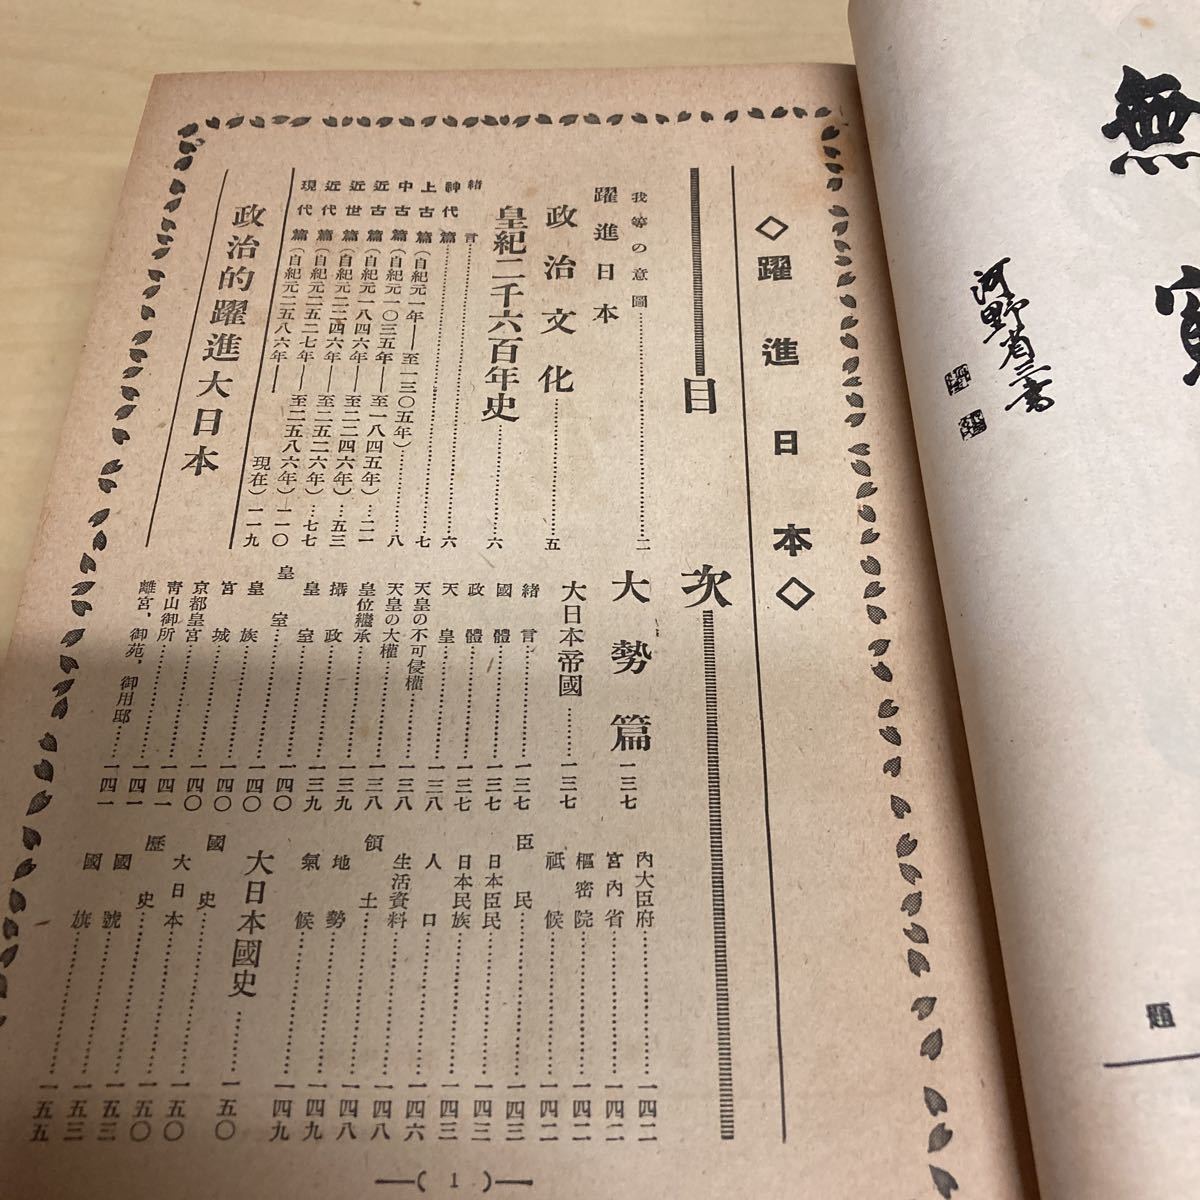 無
寳
河野省三書
題
◇躍進日本◇
目次
我等の意圖……二
躍進日本
政治文化……五
皇紀二千六百年史……六
緒言……六
神代篇……七
上古篇(自紀元一年―至一三〇五年)……八
中古篇(自紀元一〇三五年―至一八四五年)…二一
近古篇(自紀元一八四六年―至二二四六年)…五三
近世篇(自紀元二二四六年―至二五二六年)…七七
近代篇(自紀元二五二七年―至二五八六年)一一〇
現代篇(自紀元二五八六年―現在)一一九
政治的躍進大日本
大勢篇一三七
大日本帝國……一三七
緒言……一三七
國體……一三七
政體……一三七
天皇……一三八
天皇の不可侵權……一三八
天皇の大權……一三八
皇位繼承……一三八
攝政……一三九
皇室……一三九
皇室……一四〇
皇族……一四〇
宮城……一四〇
京都皇宮……一四〇
靑山御所……一四一
離宮,御苑,御用邸……一四一
內大臣府……一四二
宮內省……一四二
樞密院……一四二
祗候……一四二
臣民……一四三
日本臣民……一四三
日本民族……一四三
人口……一四六
生活資料……一四八
領土……一四八
地勢……一四八
氣候……一四九
大日本國史……一四九
國史……一五〇
大日本……一五〇
歷史……一五〇
國號……一五三
國旗……一五三
一五五
―( 1 )―